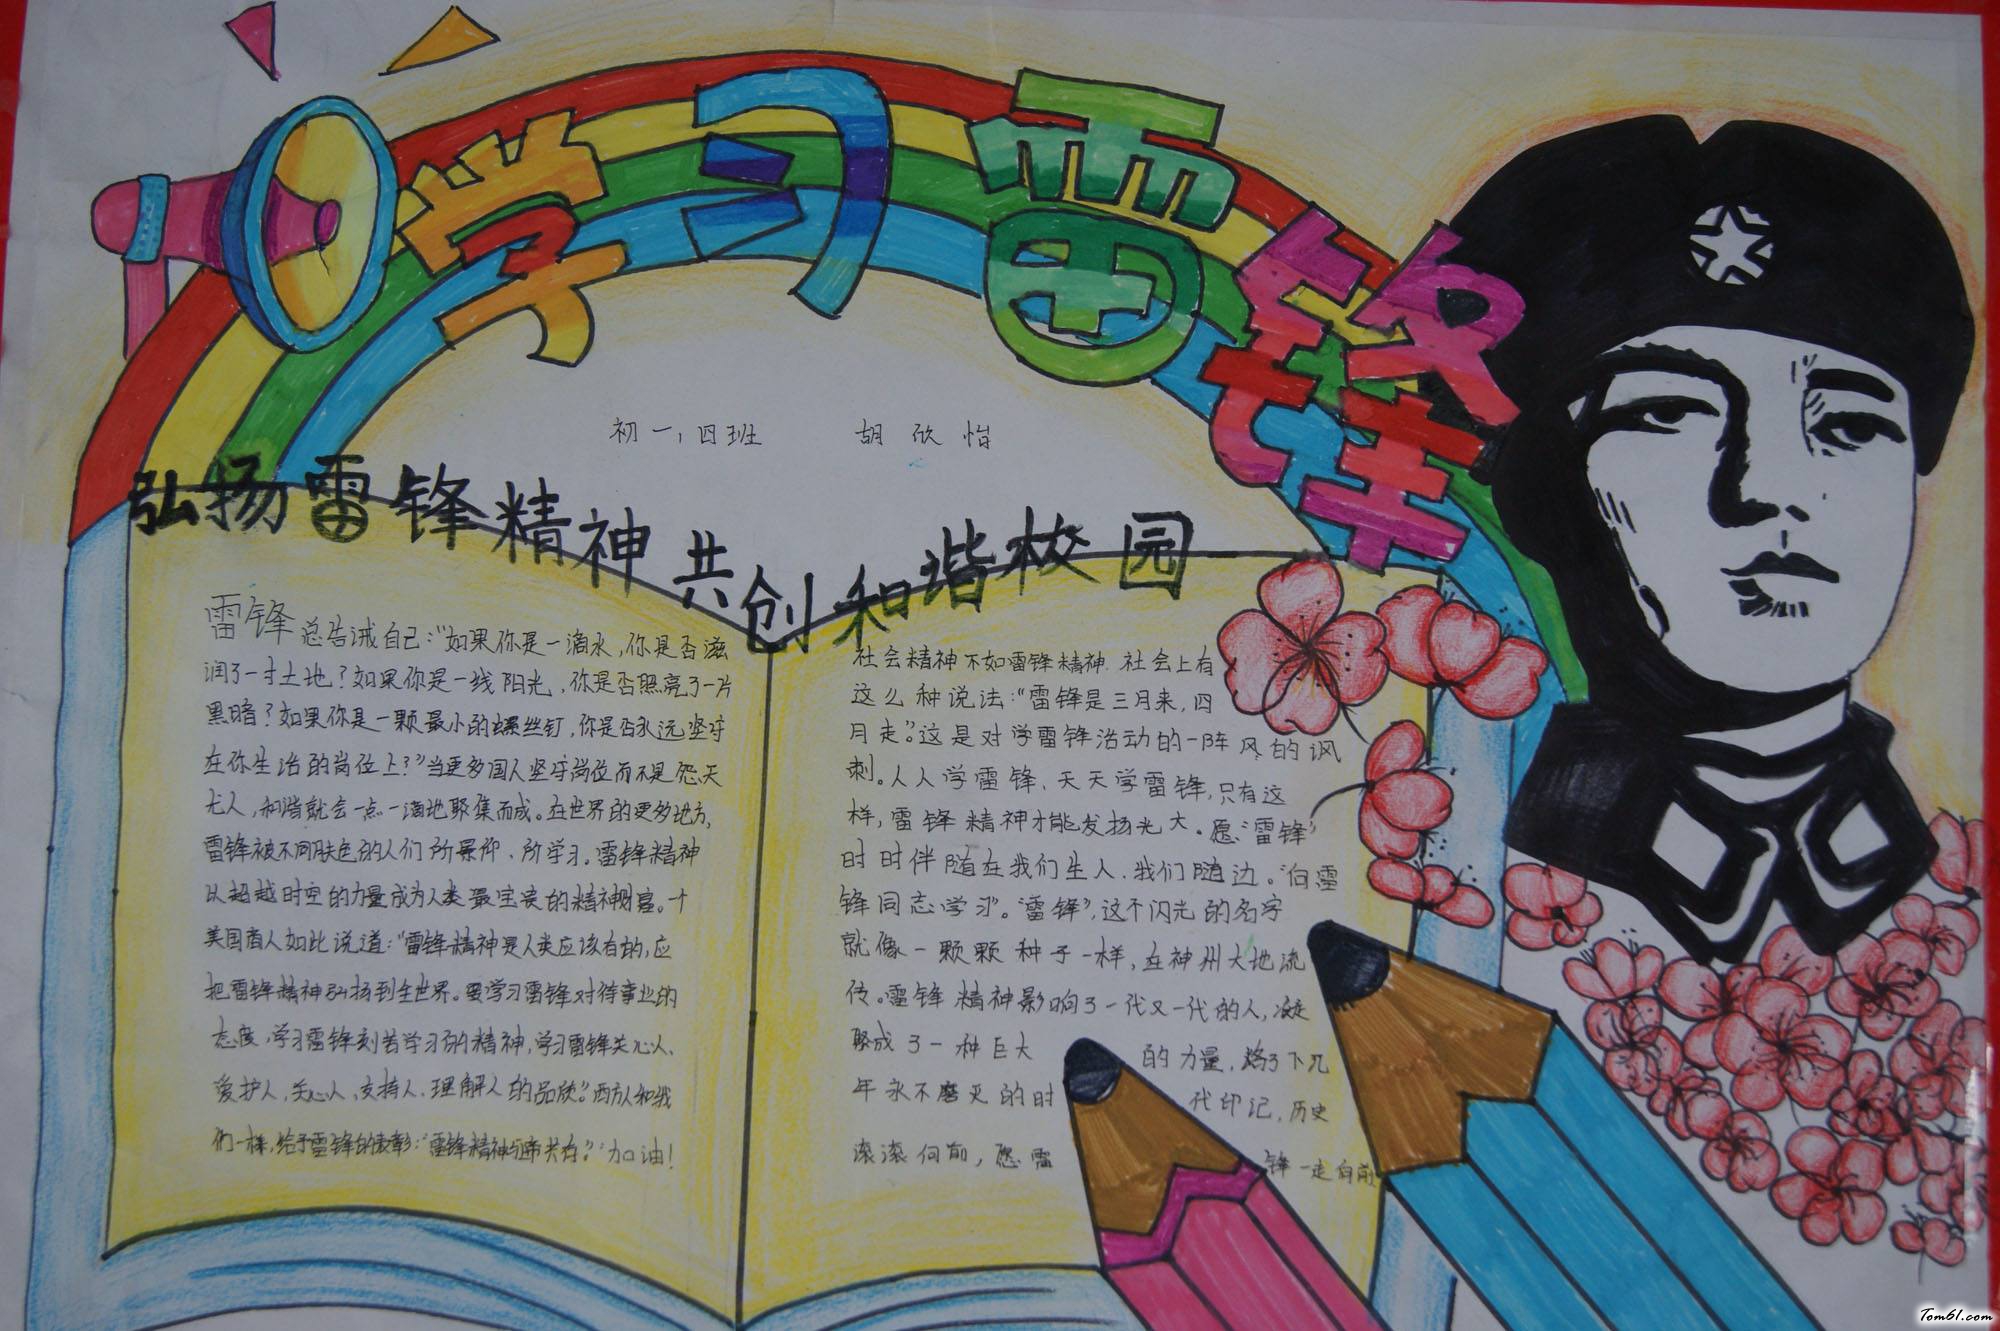 学习雷锋
初一,四班 胡欣怡
弘扬雷锋精神共创和谐校园
雷锋总告诫自己:“如果你是一滴水,你是否滋
润了一寸土地?如果你是一线阳光,你是否照亮了一片
黑暗?如果你是一颗最小的螺丝钉,你是否永远坚守
在你生活的岗位上?”当更多国人坚守岗位而不是怨天
尤人,和谐就会一点一滴地聚集而成。在世界的更多地方,
雷锋被不同肤色的人们所景仰、所学习。雷锋精神
以超越时空的力量成为人类最宝贵的精神财富。一个
美国商人如此说道:“雷锋精神是人类应该有的,应
把雷锋精神弘扬到全世界。要学习雷锋对待事业的
态度,学习雷锋刻苦学习的精神,学习雷锋关心人、
爱护人、关心人、支持人、理解人的品质。”西方人和我
们一样,给予雷锋的表彰:“雷锋精神与帝共存。”加油!
社会精神不如雷锋精神.社会上有
这么种说法:“雷锋是三月来,四
月走”。这是对学雷锋活动的一阵风的讽
刺。人人学雷锋、天天学雷锋,只有这
样,雷锋精神才能发扬光大。愿“雷锋”
时时伴随在我们生人、我们随边。“向雷
锋同志学习”。“雷锋”,这个闪光的名字
就像一颗颗种子一样,在神州大地流
传。雷锋精神影响了一代又一代的人,凝
聚成了一种巨大的力量,烙了下几
年永不磨灭的时代印记,历史
滚滚向前,愿雷锋一走向前
Tom61.com